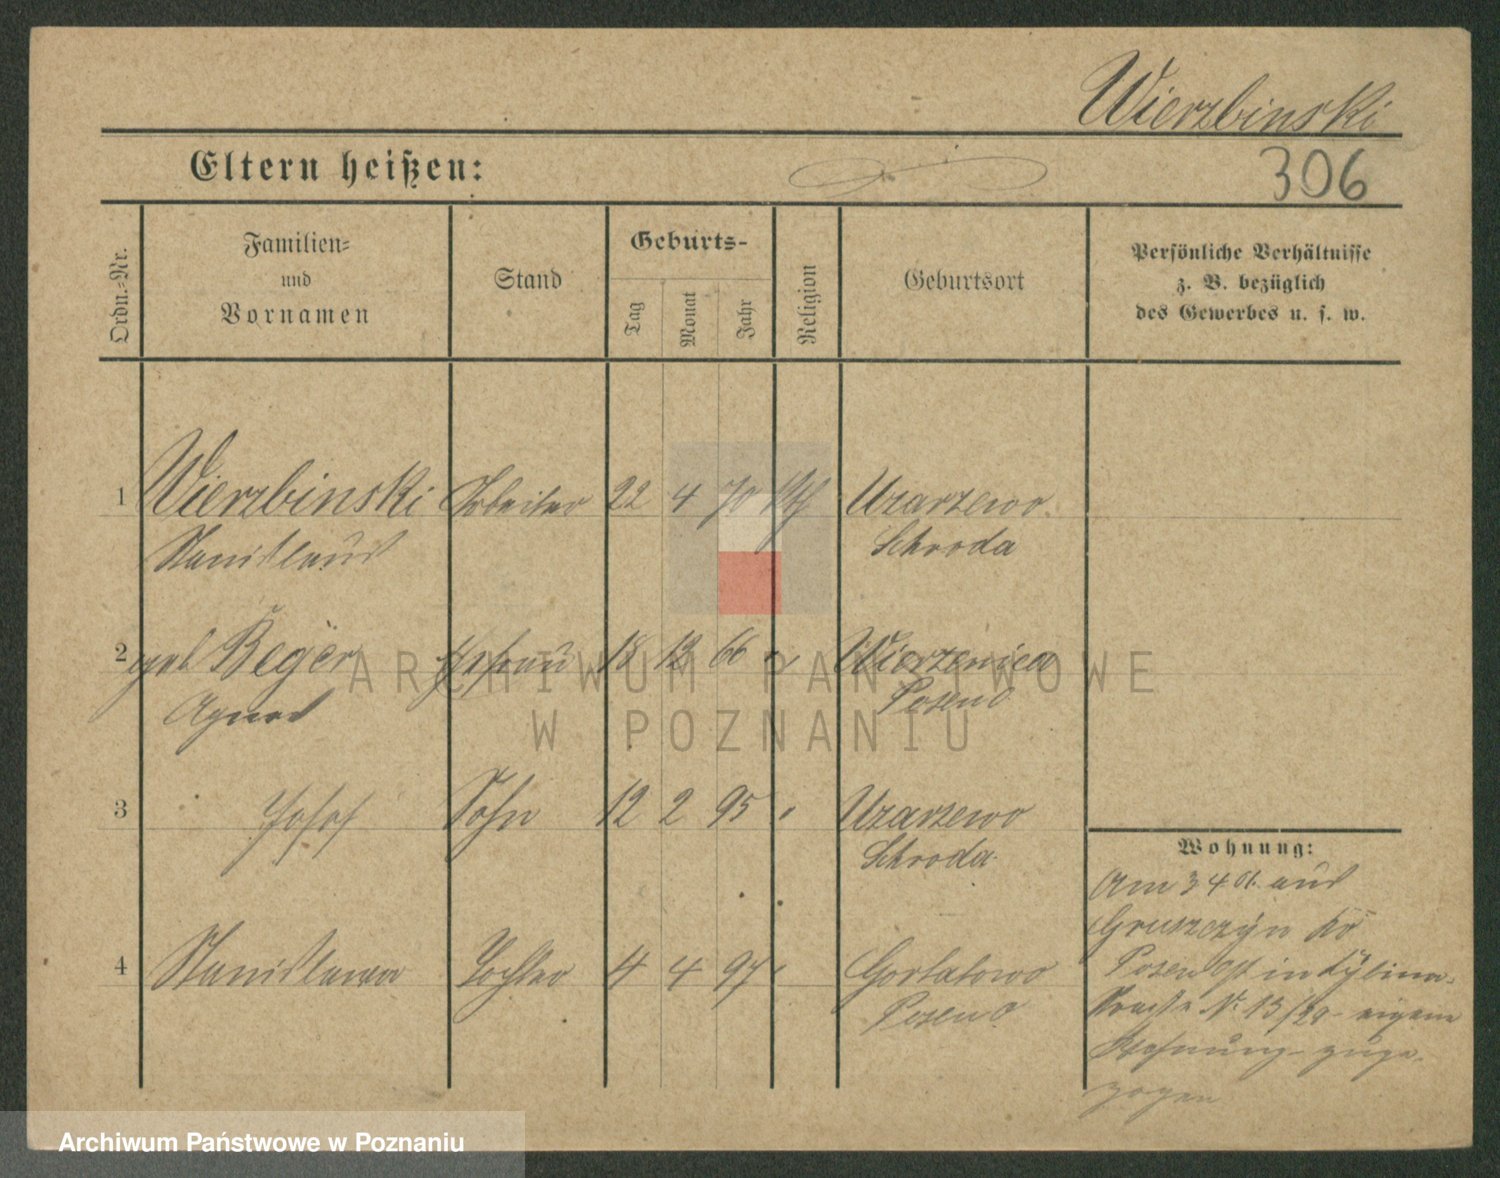 Wierzbinski
Eltern heißen:
306
Ordn.-Nr.
Familien-
und
Vornamen
Stand
Geburts-
Tag
Monat
Jahr
Religion
Geburtsort
Persönliche Verhältnisse
z. B. bezüglich
des Gewerbes u. s. w.
1 Wierzbinski Arbeiter 22 4 70 kth Uzarzewo
Stanislaus Schroda
2 geb Beger Ehefrau 18 12 66 " Wierzenica
Agnes Posen O
3 Josef Sohn 12 2 95 " Uzarzewo
Schroda
4 Stanislawa Tochter 4 4 97 " Gortatowo
Posen O
Wohnung:
Am 3 4 01. aus
Gruszczyn Kr
Posen Ost in
straße No 13/ eigene
Wohnung zuge-
zogen
ARCHIWUM PAŃSTWOWE
W POZNANIU
Archiwum Państwowe w Poznaniu